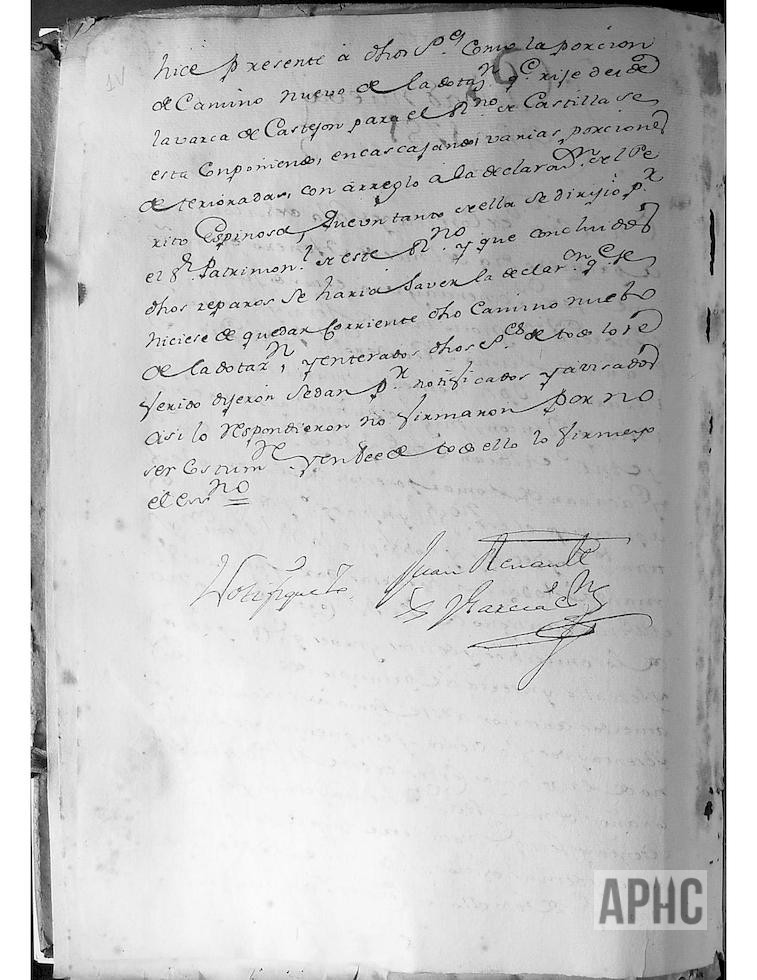 1V
hice presente a dhos Sres. Como la porcion
de Camino nuevo de la dotazn qe rije desde
la varca de Castejon para el Rno de Castilla se
esta Conponiendo, encascajando, varias porciones
deterioradas, con arreglo a la declarazn del Pe
rito Espinosa, que en tanto de ella se dirijio pr
el Patrimonl de este Rno y que concluidos
dhos reparos se haria saver la declaron qe se
hiciese de quedar Corriente dho Camino nuebo
de la dotazn, y enterados dhos Sres de todo lo re
ferido dijeron se dan pr notificados y avisados
asi lo Respondieron no firmaron por no
ser Costume y en fee de todo ello lo firme yo
el esno
Notifiquelo
Juan
Garcia esno
APHC